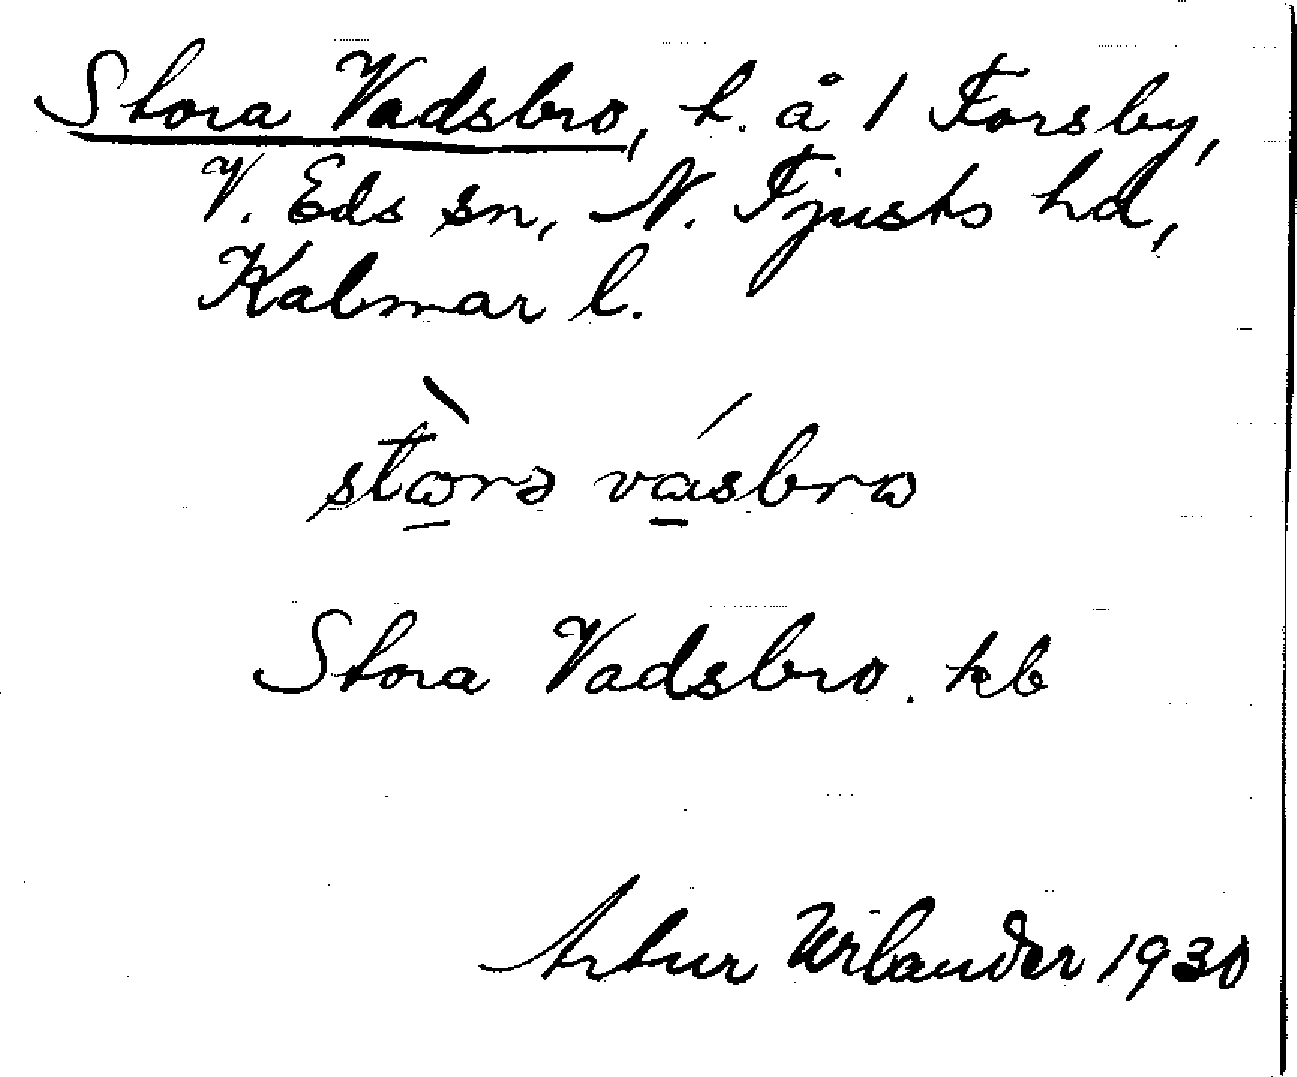 Stora Vadsbro, t. å 1 Forsby,
V. Eds sn, N. Tjusts hd,
Kalmar l.
stɷ̀rə vásbrɷ
Stora Vadsbro. kb
Artur Urlander 1930